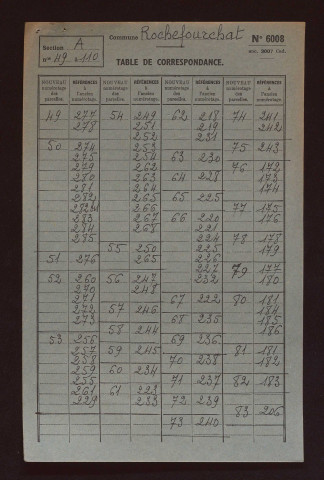 Section A
nos 49 à 110
Commune Rochefourchat
N° 6008
anc. 3007 Cad.
TABLE DE CORRESPONDANCE.
NOUVEAU numérotage des parcelles.
RÉFÉRENCES à l'ancien numérotage.
NOUVEAU numérotage des parcelles.
RÉFÉRENCES à l'ancien numérotage.
NOUVEAU numérotage des parcelles.
RÉFÉRENCES à l'ancien numérotage.
NOUVEAU numérotage des parcelles.
RÉFÉRENCES à l'ancien numérotage.
49 277
278
50 274
275
279
280
281
282
282bis
283
284
285
51 276
52 260
270
271
272
273
53 256
257
258
259
255
261
229
54 249
251
252
253
254
262
263
264
265
266
267
268
55 250
265
56 247
248
57 246
58 244
59 245
60 234
61 223
233
62 218
219
231
63 230
64 228
65 225
66 220
221
224
225
226
227
232
67 222
68 235
69 236
70 238
71 237
72 239
73 240
74 241
242
75 243
76 172
173
174
77 175
176
78 178
179
79 177
180
80 181
184
185
186
81 181
182
82 183
83 206